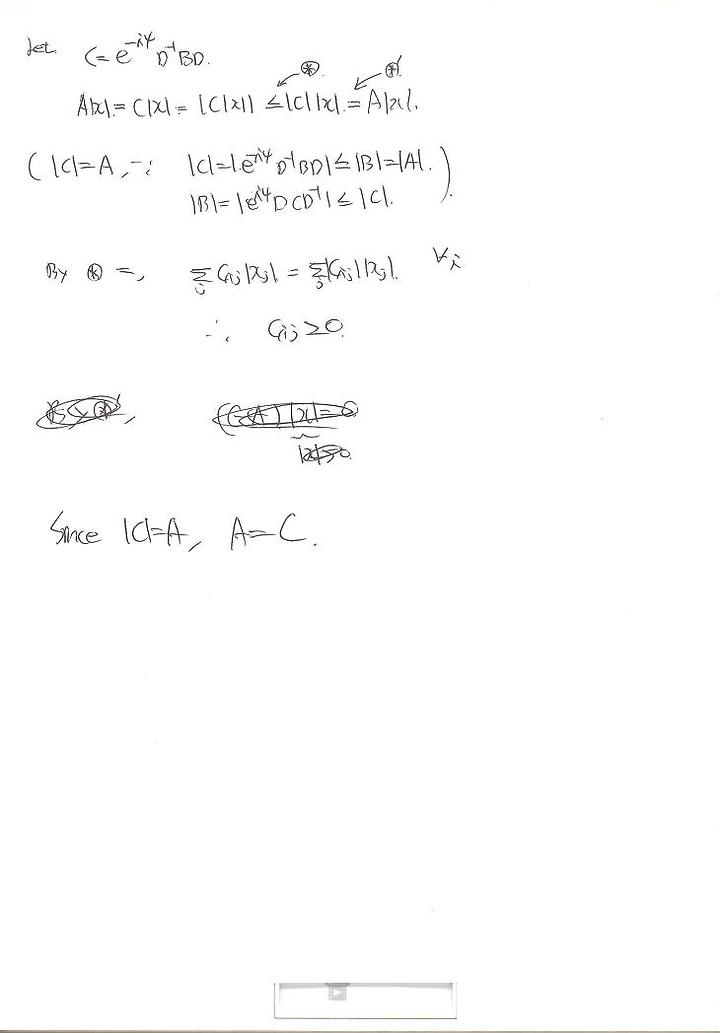 Let C = e^{-iψ} D^{-1}BD.
A|x| = C|x| = |C|x|| ≤ |C||x| = A|x|.
( |C|=A, ∵ |C|=|e^{-iψ} D^{-1}BD| ≤ |B|=|A|.
|B|=|e^{iψ}DCD^{-1}| ≤ |C|. )
By ⊛ =, Σ_j C_{ij}|x_j| = Σ_j |C_{ij}||x_j|. ∀i
∴ C_{ij} ≥ 0.
Since |C|=A, A=C.